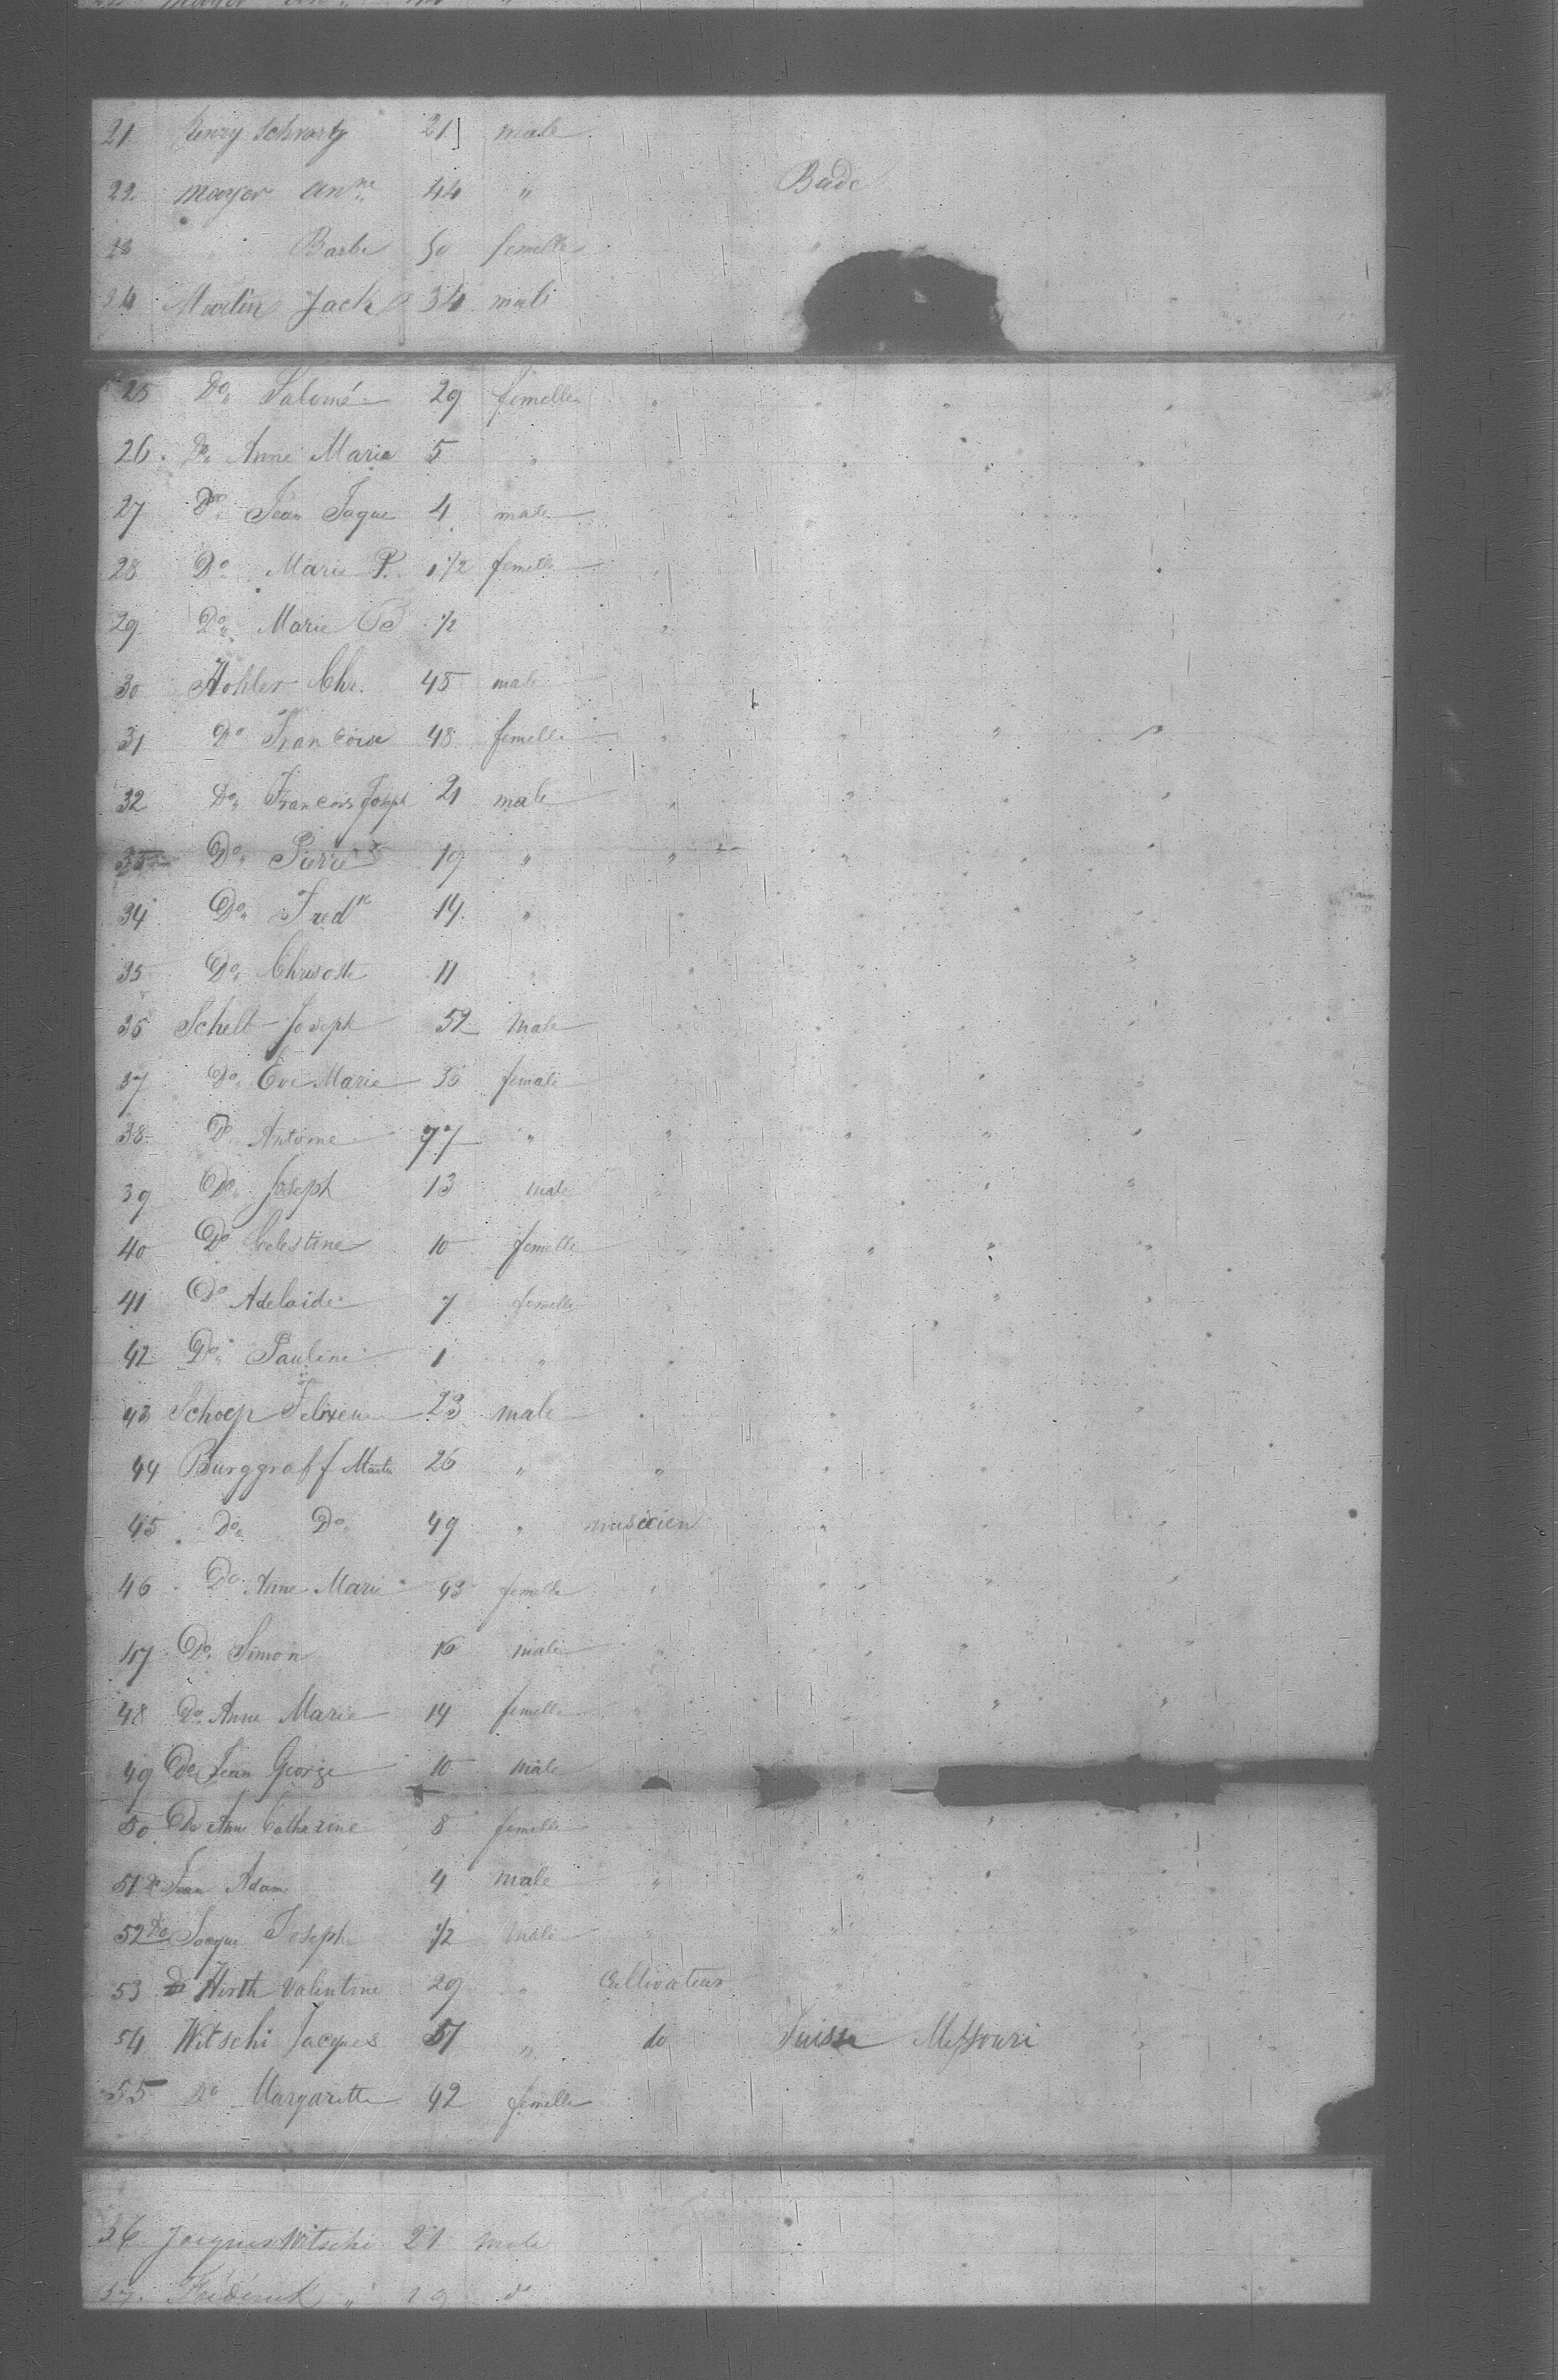 21 Henry Schwartz 21 male
22 Mayer Anne 44 " Bade
23 Barbe 50 femelle "
24 Martin Jack 34 male
25 Do Salomé 29 femelle " " " "
26 Do Anne Marie 5 " " " " "
27 Do Jean Jaque 4 male
28 Do Marie P. 1 1/2 femelle "
29 Do Marie 1/2 "
30 Kohler Chr. 45 male
31 Do Francoise 48 femelle " " " "
32 Do Francois Joseph 21 male " " " "
33 Do Pierre 19 " " " " "
34 Do Fredk 14 " " "
35 Do 11 " " " "
36 Schelt Joseph 52 Male " "
37 Do Eve Marie 36 female " "
38 Do Antoine 77 " " " " "
39 Do Joseph 13 male " " "
40 Do Celestine 10 femelle " " " "
41 Do Adelaide 7 femelle " " "
42 Do Pauline 1 " "
43 Schoep 23 male " " " "
44 Burggraff Martin 26 " " " " "
45 Do Do 49 " musicien " " "
46 Do Anne Marie 43 femelle " " " "
47 Do Simon 16 male " " " "
48 Do Anne Marie 14 femelle " " "
49 Do Jean George 10 male
50 Do Anne Catherine 8 femelle " "
51 Do Jean Adam 4 male " " " "
52 Do Jacque Joseph 1/2 male " " " "
53 Do Hirth Valentine 29 " Cultivateur " " "
54 Witschi Jacques 51 " do Suisse Missouri " "
55 Do Margarette 42 femelle
56 Jacques Witschi 21 male
57. Fréderick " 19 do